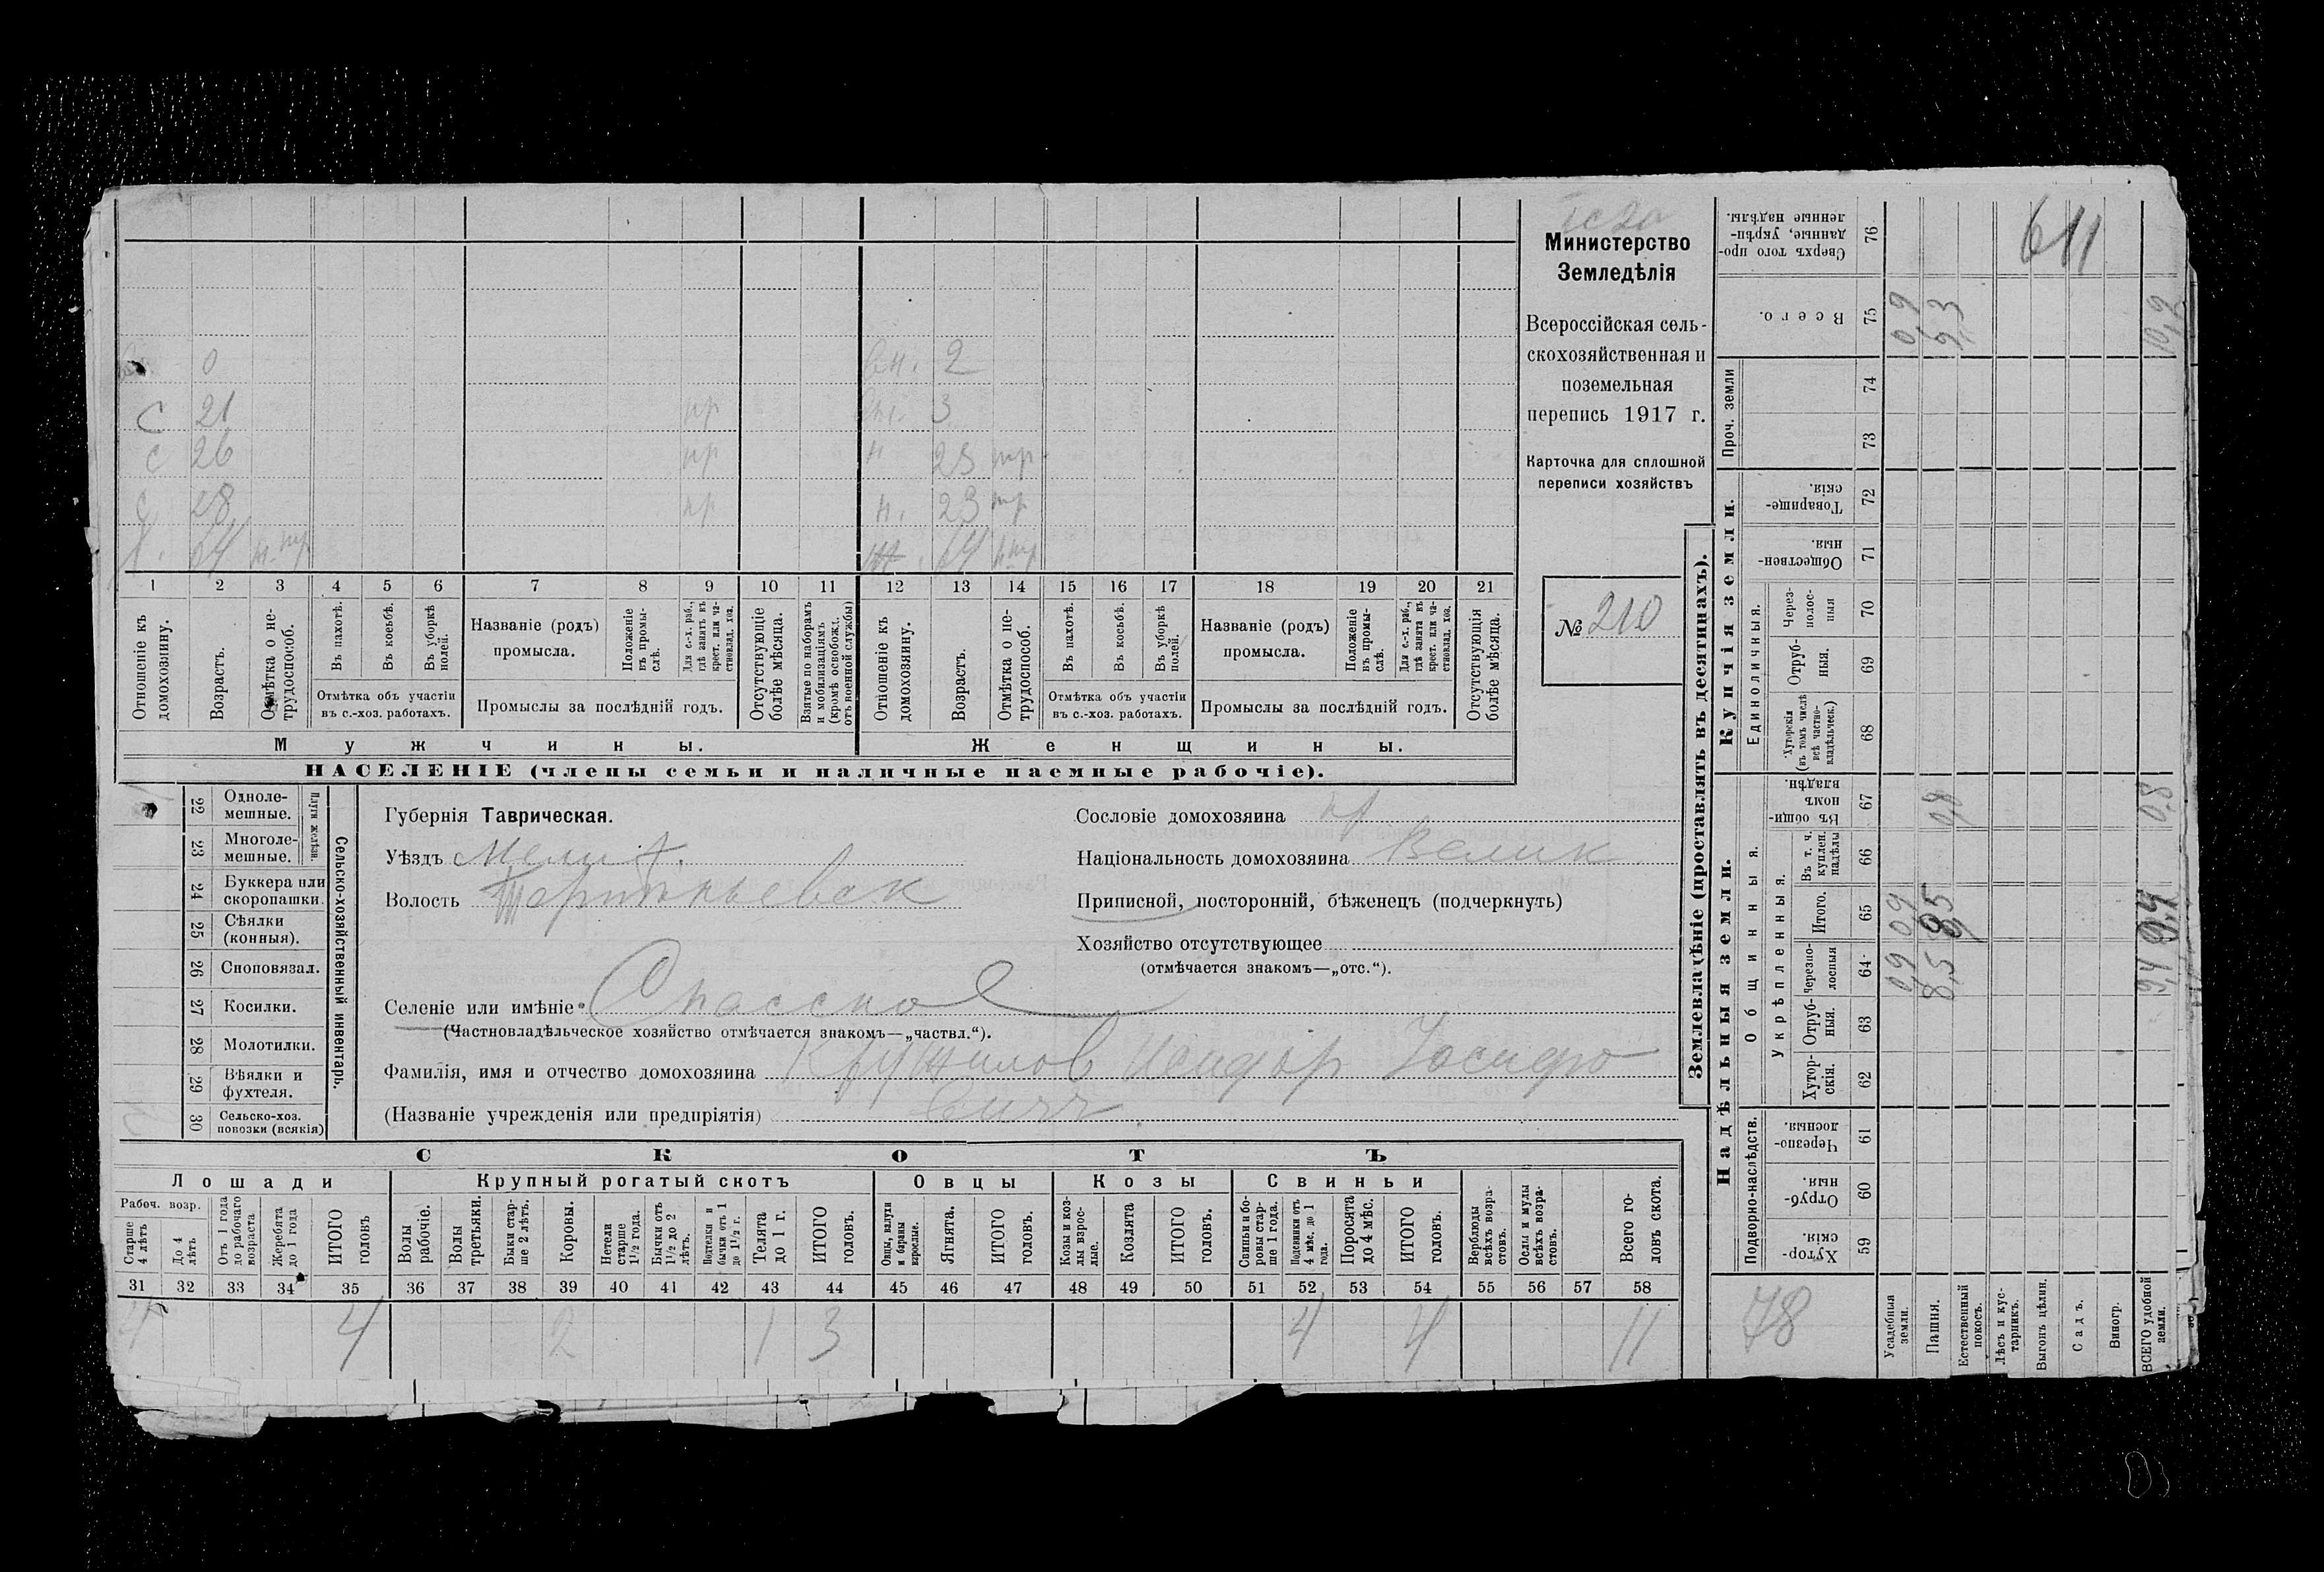 611
Министерство
Земледѣлія
Всероссійская сель-
скохозяйственная и
поземельная
перепись 1917 г.
Карточка для сплошной
переписи хозяйствъ
№ 210
0 вн. 2
С 21 пр 3
с 26 пр н 23 тр
с 28 пр н. 23 тр
64 н.-тр 64 н тр
1 2 3 4 5 6 7 8 9 10 11 12 13 14 15 16 17 18 19 20 21
Отношеніе къ домохозяину.
Возрастъ.
Отмѣтка о не-трудоспособ.
Въ пахотѣ.
Въ косьбѣ.
Въ уборкѣ полей.
Отмѣтка объ участіи
въ с.-хоз. работахъ.
Названіе (родъ)
промысла.
Положеніе въ промы-слѣ.
Для с.-х. раб., гдѣ занятъ въ крест. или ча-стновлад. хоз.
Промыслы за послѣдній годъ.
Отсутствующіе болѣе мѣсяца.
Взятые по наборамъ и мобилизаціямъ (кромѣ освобожд. отъ военной службы)
Отношеніе къ домохозяину.
Возрастъ.
Отмѣтка о не-трудоспособ.
Въ пахотѣ.
Въ косьбѣ.
Въ уборкѣ полей.
Отмѣтка объ участіи
въ с.-хоз. работахъ.
Названіе (родъ)
промысла.
Положеніе въ промы-слѣ.
Для с.-х. раб., гдѣ занята въ крест. или ча-стновлад. хоз.
Промыслы за послѣдній годъ.
Отсутствующія болѣе мѣсяца.
Мужчины. Женщины.
НАСЕЛЕНІЕ (члены семьи и наличные наемные рабочіе).
22 Одноле-
мешные.
23 Многоле-
мешные.
Плуги желѣзн.
24 Буккера или
скоропашки.
25 Сѣялки
(конныя).
26 Сноповязал.
27 Косилки.
28 Молотилки.
29 Вѣялки и
фухтеля.
30 Сельско-хоз.
повозки (всякія)
Сельско-хозяйственный инвентарь.
Губернія Таврическая.
Уѣздъ Мелит.
Волость
Селеніе или имѣніе Спасское
(Частновладѣльческое хозяйство отмѣчается знакомъ—„частвл.“).
Фамилія, имя и отчество домохозяина Кружилов Исидор Иосифо
(Названіе учрежденія или предпріятія) вичъ
Сословіе домохозяина кр
Національность домохозяина Велик
Приписной, посторонній, бѣженецъ (подчеркнуть)
Хозяйство отсутствующее
(отмѣчается знакомъ—„отс.“).
СКОТЪ
Лошади Крупный рогатый скотъ Овцы Козы Свиньи
Рабоч. возр.
Старше 4 лѣтъ
До 4 лѣтъ
Отъ 1 года до рабочаго возраста
Жеребята до 1 года
ИТОГО головъ
Волы рабочіе.
Волы третьяки.
Быки стар-ше 2 лѣтъ.
Коровы.
Нетели старше 1½ года.
Бычки отъ 1½ до 2 лѣтъ.
Подтелки и бычки отъ 1 до 1½ г.
Телята до 1 г.
ИТОГО головъ.
Овцы, валухи и бараны взрослые.
Ягнята.
ИТОГО головъ.
Козы и коз-лы взрос-лые.
Козлята
ИТОГО головъ.
Свиньи и бо-ровы стар-ше 1 года.
Подсвинки отъ 4 мѣс. до 1 года.
Поросята до 4 мѣс.
ИТОГО головъ.
Верблюды всѣхъ возра-стовъ.
Ослы и мулы всѣхъ возра-стовъ.
Всего го-ловъ скота.
31 32 33 34 35 36 37 38 39 40 41 42 43 44 45 46 47 48 49 50 51 52 53 54 55 56 57 58
4 4 2 1 3 4 4 11
Землевладѣніе (проставлять въ десятинахъ).
Купчія земли.
Надѣльныя земли.
Сверхъ того про-данные, укрѣп-ленные надѣлы. 76
Всего. 75 0,9 9,3 10,2
Проч. земли 74 73
Товарище-скія. 72
Обществен-ныя. 71
Единоличныя.
Через-полос-ныя 70
Отруб-ныя. 69
Хуторскія (въ томъ числѣ всѣ частно-владѣльческ.) 68
Общинныя.
Въ общи-номъ владѣн. 67 0,8 0,8
Укрѣпленныя.
Въ т. ч. куплен. надѣлы 66
Итого. 65 09 85 9,4
Черезпо-лосныя 64 0,9 8,5 9,4
Отруб-ныя. 63
Хутор-скія. 62
Подворно-наслѣдств.
Черезпо-лосныя. 61
Отруб-ныя. 60
Хутор-скія. 59
78
Усадебныя земли.
Пашня.
Естественный покосъ.
Лѣсъ и кус-тарникъ.
Выгонъ цѣлин.
Садъ.
Виногр.
ВСЕГО удобной земли.